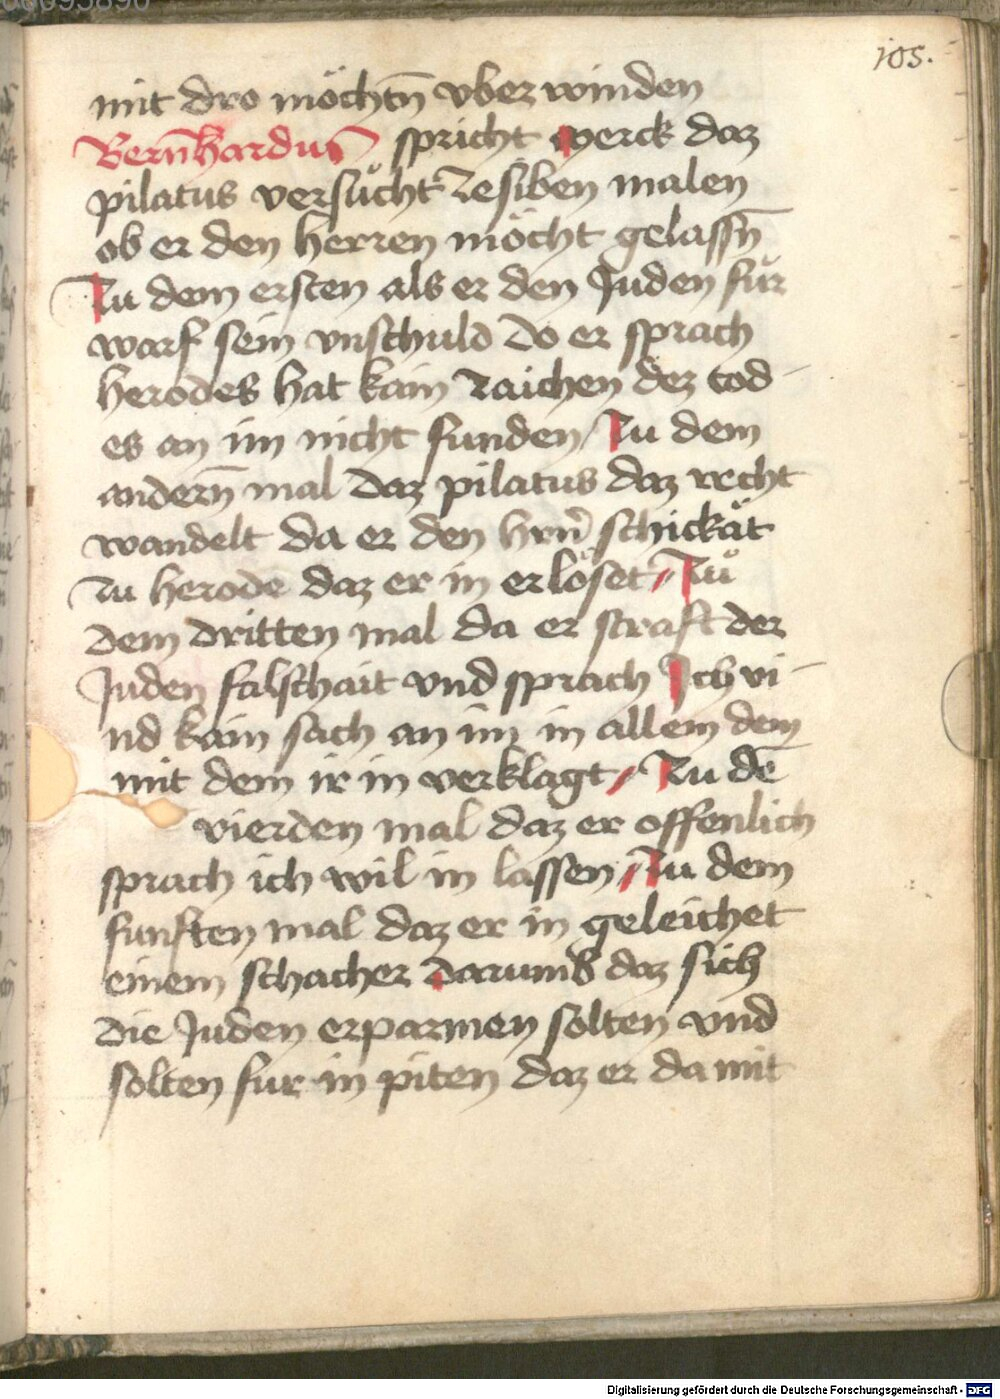 105.
mit dro möchtn̄ vber winden
Bern̄hardus spricht merck daz
pilatus versůcht zesiben malen
ob er den herren möcht gelassn̄
Zu dem ersten als er den Juden fůr
warf sein vnschuld do er sprach
herodes hat kain zaichen dez tod-
es an im nicht funden / Zu dem
andern̄ mal daz pilatus daz recht
wandelt da er den hrn̄ schickät
zu herode daz er in erlöset / Zů
dem dritten mal da er straft der
Juden falschait vnd sprach Ich vi-
nd kain sach an im in allem dem
mit dem ir in verklagt / Zu dē
vierden mal daz er offenlich
sprach ich wil in lassen / Zu dem
funften mal daz er in geleichet
einem schacher darumb daz sich
die Juden erparmen solten vnd
solten fur in piten daz er da mit
Digitalisierung gefördert durch die Deutsche Forschungsgemeinschaft - DFG